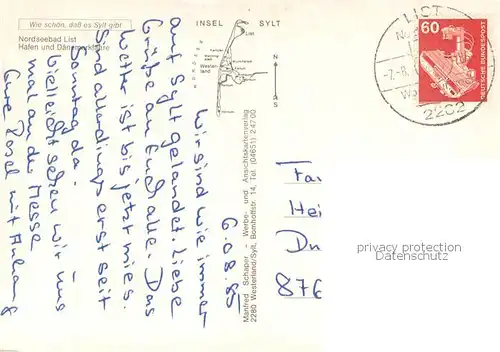 Wie schön, daß es Sylt gibt
Nordseebad List
Hafen und Dänemarkfähre
INSEL SYLT
List
Westerland
Manfred Schaper - Werbe- und Ansichtskartenverlag
2280 Westerland/Sylt, Bomhoffstr. 14, Tel. (04651) 2 47 00
6.08.85
Wir sind wie immer
auf Sylt gelandet. Liebe
Grüße an Euch alle. Das
Wetter ist bis jetzt mies.
Sind allerdings erst seit
Sonntag da.
Vielleicht sehen wir uns
mal an der Messe
Eure Rosel mit Anhang
60
DEUTSCHE BUNDESPOST
LIST
2282
Fam
Hei
876
privacy protection
Datenschutz